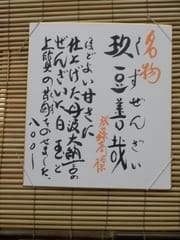 名物
くずぜんざい
玖豆善哉
ほどよい甘さに
仕上げた丹波大納言の
ぜんざいに白玉と
上質の葛をのせました。
八〇〇